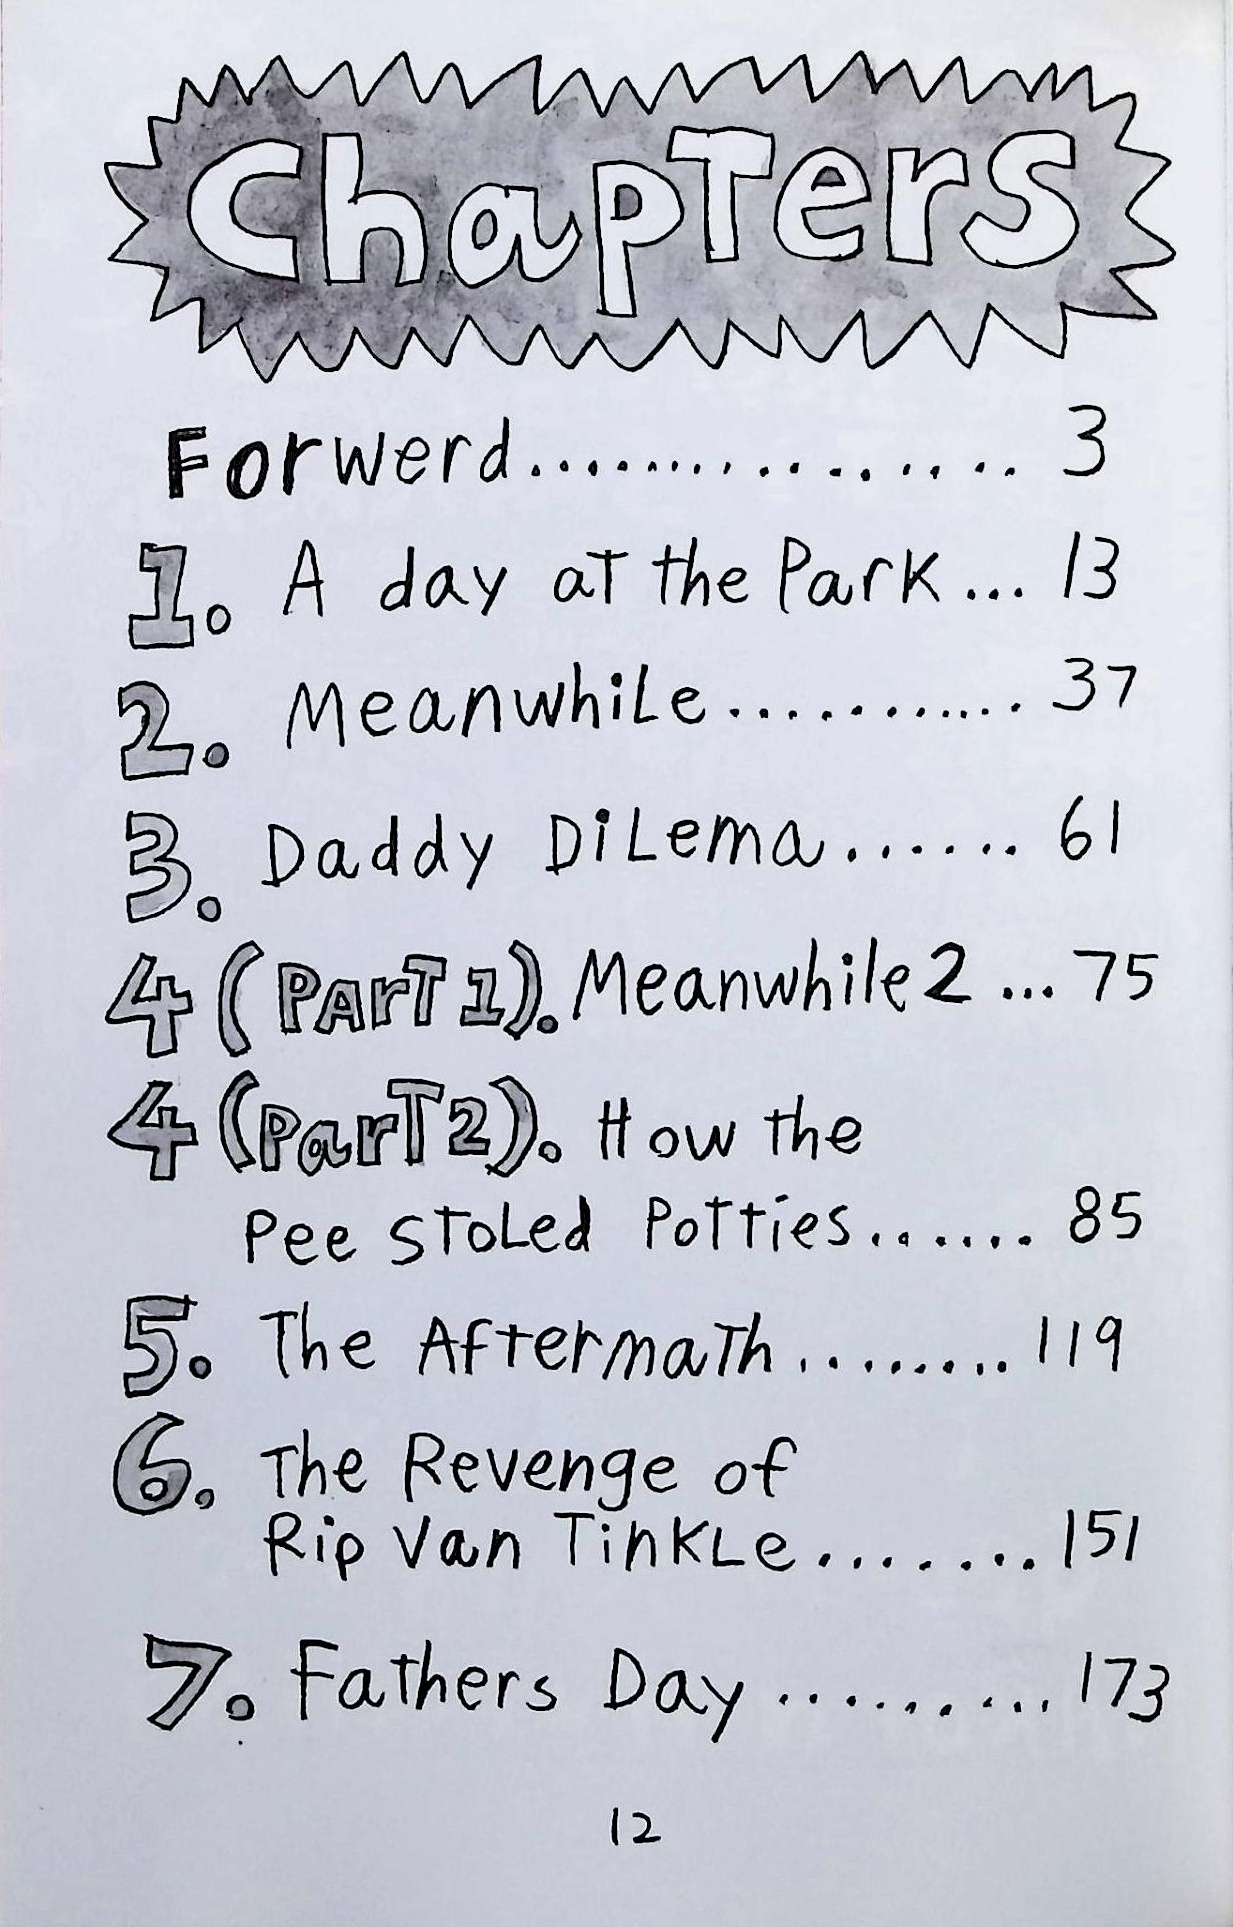 ChapTers
Forwerd.................. 3
1. A day aT the Park... 13
2. Meanwhile............ 37
3. Daddy DiLema....... 61
4 (PArT 1). Meanwhile 2 ... 75
4 (ParT 2). How the
Pee SToLed PoTTies....... 85
5. The AfTermaTh ........ 119
6. The Revenge of
Rip Van TinKLe........ 151
7. Fathers Day .......... 173
12